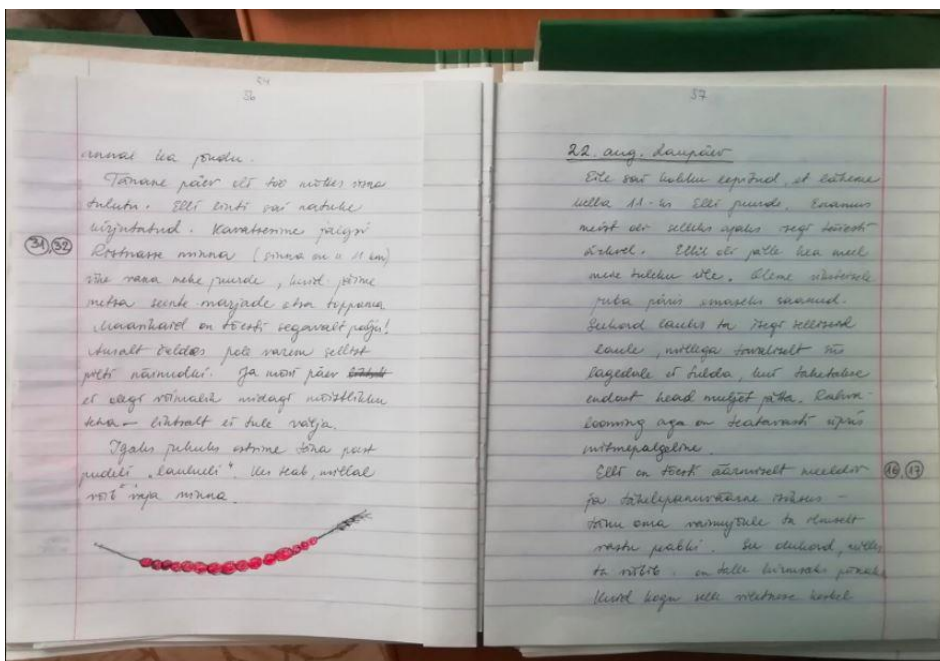 54
56
annab ka jõudu.
Tänane päev oli töö mõttes üsna
tuluta. Elli linti sai natuke
kirjutatud. Kavatsesime jalgsi
31, 32
Rostnasse minna (sinna on u 11 km)
ühe vana mehe juurde, kuid jäime
metsa seente-marjade otsa toppama
Maasikaid on tõesti segavalt palju!
Ausalt öeldes pole varem sellist
pilti näinudki. Ja mõni päev
ei olegi võimalik midagi mõistlikku
teha – lihtsalt ei tule välja.
Igaks juhuks ostsime täna poest
pudeli „laululi". Kes teab, millal
võib vaja minna.
57
22. aug. Laupäev
Eile sai kokku lepitud, et läheme
kella 11-ks Elli juurde. Enamus
meist oli selleks ajaks isegi tõesti
ärkvel. Ellil oli jälle hea meel
meie tuleku üle. Oleme üksteisele
juba päris omaseks saanud.
Seekord laulis ta isegi selliseid
laule, millega tavaliselt siis
lagedale ei tulda, kui tahetakse
endast head muljet jätta. Rahva-
looming aga on teatavasti üpris
mitmepalgeline.
Elli on tõesti äärmiselt meeldiv
16, 17
ja tähelepanuväärne isiksus –
tänu oma vaimujõule ta ilmselt
vastu peabki. See olukord, milles
ta viibib, on talle
Kuid kogu selle viletsuse keskel